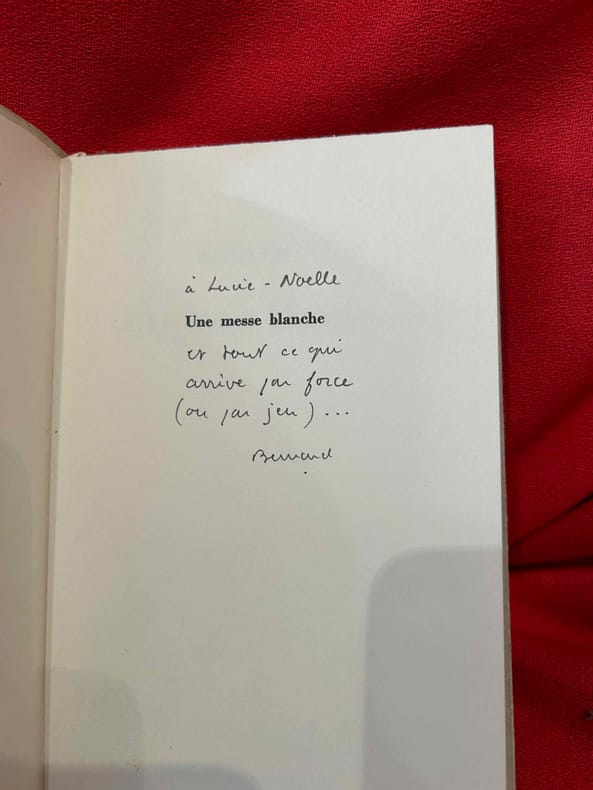 à Lucie - Noelle
Une messe blanche
et tout ce qui
arrive par force
(ou par jeu) ...
Bernard